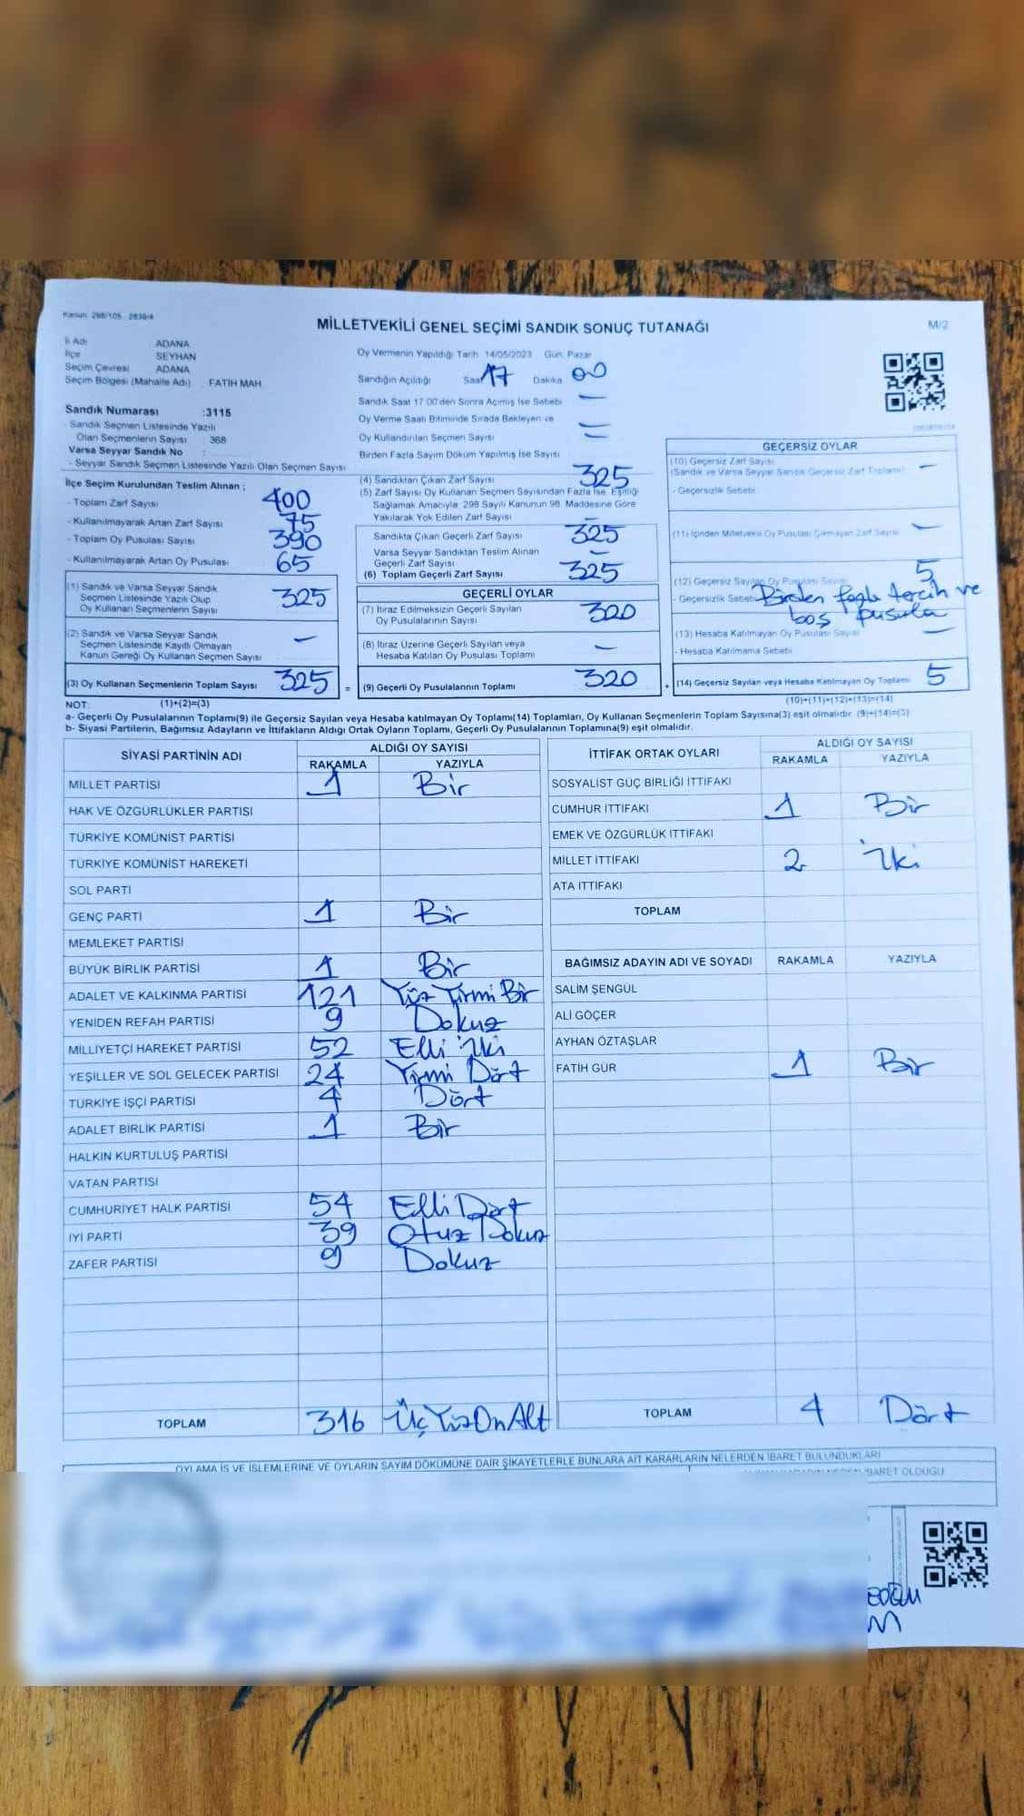 Kanun: 298/105 - 2839/4
MİLLETVEKİLİ GENEL SEÇİMİ SANDIK SONUÇ TUTANAĞI
M/2
İl Adı ADANA
İlçe SEYHAN
Seçim Çevresi ADANA
Seçim Bölgesi (Mahalle Adı) : FATİH MAH.
Oy Vermenin Yapıldığı Tarih 14/05/2023 Gün: Pazar
Sandığın Açıldığı Saat 17 Dakika 00
Sandık Numarası :3115
- Sandık Seçmen Listesinde Yazılı
Olan Seçmenlerin Sayısı : 368
Varsa Seyyar Sandık No :
- Seyyar Sandık Seçmen Listesinde Yazılı Olan Seçmen Sayısı
Sandık Saat 17.00'den Sonra Açılmış İse Sebebi —
Oy Verme Saati Bitiminde Sırada Bekleyen ve
Oy Kullandırılan Seçmen Sayısı —
Birden Fazla Sayım Döküm Yapılmış İse Sayısı —
İlçe Seçim Kurulundan Teslim Alınan ;
- Toplam Zarf Sayısı 400
- Kullanılmayarak Artan Zarf Sayısı 75
- Toplam Oy Pusulası Sayısı 390
- Kullanılmayarak Artan Oy Pusulası 65
(1) Sandık ve Varsa Seyyar Sandık
Seçmen Listesinde Yazılı Olup
Oy Kullanan Seçmenlerin Sayısı 325
(2) Sandık ve Varsa Seyyar Sandık
Seçmen Listesinde Kayıtlı Olmayan
Kanun Gereği Oy Kullanan Seçmen Sayısı —
(3) Oy Kullanan Seçmenlerin Toplam Sayısı 325 =
(4) Sandıktan Çıkan Zarf Sayısı 325
(5) Zarf Sayısı Oy Kullanan Seçmen Sayısından Fazla İse, Eşitliği
Sağlamak Amacıyla, 298 Sayılı Kanunun 98. Maddesine Göre
Yakılarak Yok Edilen Zarf Sayısı —
Sandıkta Çıkan Geçerli Zarf Sayısı 325
Varsa Seyyar Sandıktan Teslim Alınan
Geçerli Zarf Sayısı —
(6) Toplam Geçerli Zarf Sayısı 325
GEÇERLİ OYLAR
(7) İtiraz Edilmeksizin Geçerli Sayılan
Oy Pusulalarının Sayısı 320
(8) İtiraz Üzerine Geçerli Sayılan veya
Hesaba Katılan Oy Pusulası Toplamı —
(9) Geçerli Oy Pusulalarının Toplamı 320 +
GEÇERSİZ OYLAR
(10) Geçersiz Zarf Sayısı
(Sandık ve Varsa Seyyar Sandık Geçersiz Zarf Toplamı) —
- Geçersizlik Sebebi
(11) İçinden Milletvekili Oy Pusulası Çıkmayan Zarf Sayısı —
(12) Geçersiz Sayılan Oy Pusulası Sayısı 5
- Geçersizlik Sebebi Birden fazla tercih ve
boş pusula
(13) Hesaba Katılmayan Oy Pusulası Sayısı —
- Hesaba Katılmama Sebebi
(14) Geçersiz Sayılan veya Hesaba Katılmayan Oy Toplamı 5
NOT: (1)+(2)=(3) (10)+(11)+(12)+(13)=(14)
a- Geçerli Oy Pusulalarının Toplamı(9) ile Geçersiz Sayılan veya Hesaba katılmayan Oy Toplamı(14) Toplamları, Oy Kullanan Seçmenlerin Toplam Sayısına(3) eşit olmalıdır. (9)+(14)=(3)
b- Siyasi Partilerin, Bağımsız Adayların ve İttifakların Aldığı Ortak Oyların Toplamı, Geçerli Oy Pusulalarının Toplamına(9) eşit olmalıdır.
SİYASİ PARTİNİN ADI ALDIĞI OY SAYISI
RAKAMLA YAZIYLA
MİLLET PARTİSİ 1 Bir
HAK VE ÖZGÜRLÜKLER PARTİSİ
TÜRKİYE KOMÜNİST PARTİSİ
TÜRKİYE KOMÜNİST HAREKETİ
SOL PARTİ
GENÇ PARTİ 1 Bir
MEMLEKET PARTİSİ
BÜYÜK BİRLİK PARTİSİ 1 Bir
ADALET VE KALKINMA PARTİSİ 121 Yüz Yirmi Bir
YENİDEN REFAH PARTİSİ 9 Dokuz
MİLLİYETÇİ HAREKET PARTİSİ 52 Elli İki
YEŞİLLER VE SOL GELECEK PARTİSİ 24 Yirmi Dört
TÜRKİYE İŞÇİ PARTİSİ 4 Dört
ADALET BİRLİK PARTİSİ 1 Bir
HALKIN KURTULUŞ PARTİSİ
VATAN PARTİSİ
CUMHURİYET HALK PARTİSİ 54 Elli Dört
İYİ PARTİ 39 Otuz Dokuz
ZAFER PARTİSİ 9 Dokuz
TOPLAM 316 Üç Yüz On Alt
İTTİFAK ORTAK OYLARI ALDIĞI OY SAYISI
RAKAMLA YAZIYLA
SOSYALİST GÜÇ BİRLİĞİ İTTİFAKI
CUMHUR İTTİFAKI 1 Bir
EMEK VE ÖZGÜRLÜK İTTİFAKI
MİLLET İTTİFAKI 2 İki
ATA İTTİFAKI
TOPLAM
BAĞIMSIZ ADAYIN ADI VE SOYADI RAKAMLA YAZIYLA
SALİM ŞENGÜL
ALİ GÖÇER
AYHAN ÖZTAŞLAR
FATİH GÜR 1 Bir
TOPLAM 4 Dört
OYLAMA İŞ VE İŞLEMLERİNE VE OYLARIN SAYIM DÖKÜMÜNE DAİR ŞİKAYETLERLE BUNLARA AİT KARARLARIN NELERDEN İBARET BULUNDUKLARI
İBARET OLDUĞU